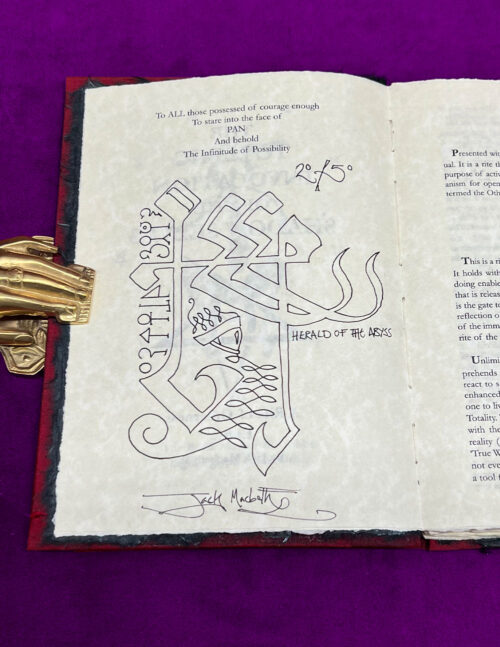 To ALL those possessed of courage enough
To stare into the face of
PAN
And behold
The Infinitude of Possibility
HERALD OF THE ABYSS
Jack Macbeth
Presented wi
ual. It is a rite t
purpose of activ
anism for open
termed the Oth
This is a ri
It holds with
doing enable
that is releas
is the gate to
reflection o
of the imm
rite of the
Unlimi
prehends
react to s
enhanced
one to liv
Totality.
with the
reality (
'True W
not eve
a tool f